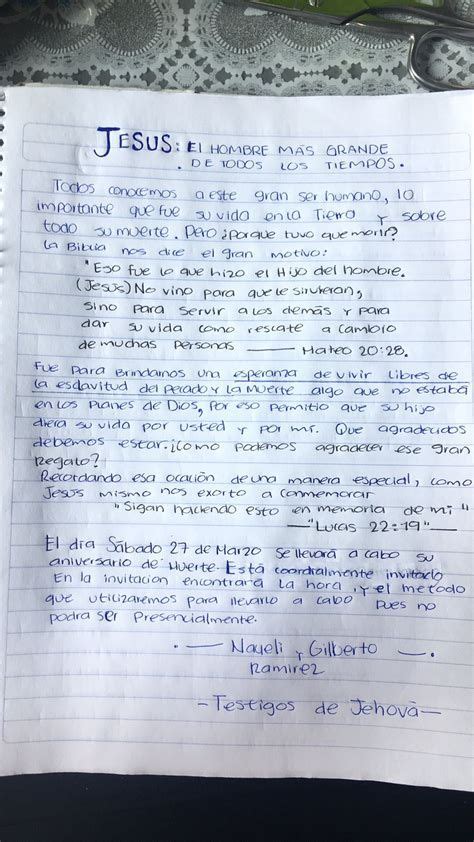 JESUS: El HOMBRE MÁS GRANDE
. DE TODOS LOS TIEMPOS.
Todos conocemos a este gran ser humano, lo
importante que fue su vida en la Tierra y sobre
todo su muerte. Pero ¿porque tuvo que morir?
La Biblia nos dice el gran motivo:
"Eso fue lo que hizo el Hijo del hombre.
(Jesus) No vino para que le sirvieran,
sino para servir a los demás y para
dar su vida como rescate a cambio
de muchas personas — Mateo 20:28.
Fue para Brindarnos una esperanza de vivir libres de
la esclavitud del Pecado y la Muerte algo que no estaba
en los Planes de Dios, por eso permitio que su hijo
diera su vida por usted y por mí. Que agradecidos
debemos estar. ¡como podemos agradecer ese gran
Regalo?
Recordando esa ocación de una manera especial, como
Jesus mismo nos exorto a conmemorar
"Sigan haciendo esto en memoria de mi"
—"Lucas 22:19"—
El dia Sábado 27 de Marzo se llevará a cabo su
aniversario de Muerte. Está coordialmente invitado
En la invitacion encontrará la hora y el metodo
que utilizaremos para llevarlo a cabo pues no
podra ser Presencialmente.
. — Nayeli y Gilberto —.
Ramirez
- Testigos de Jehová —